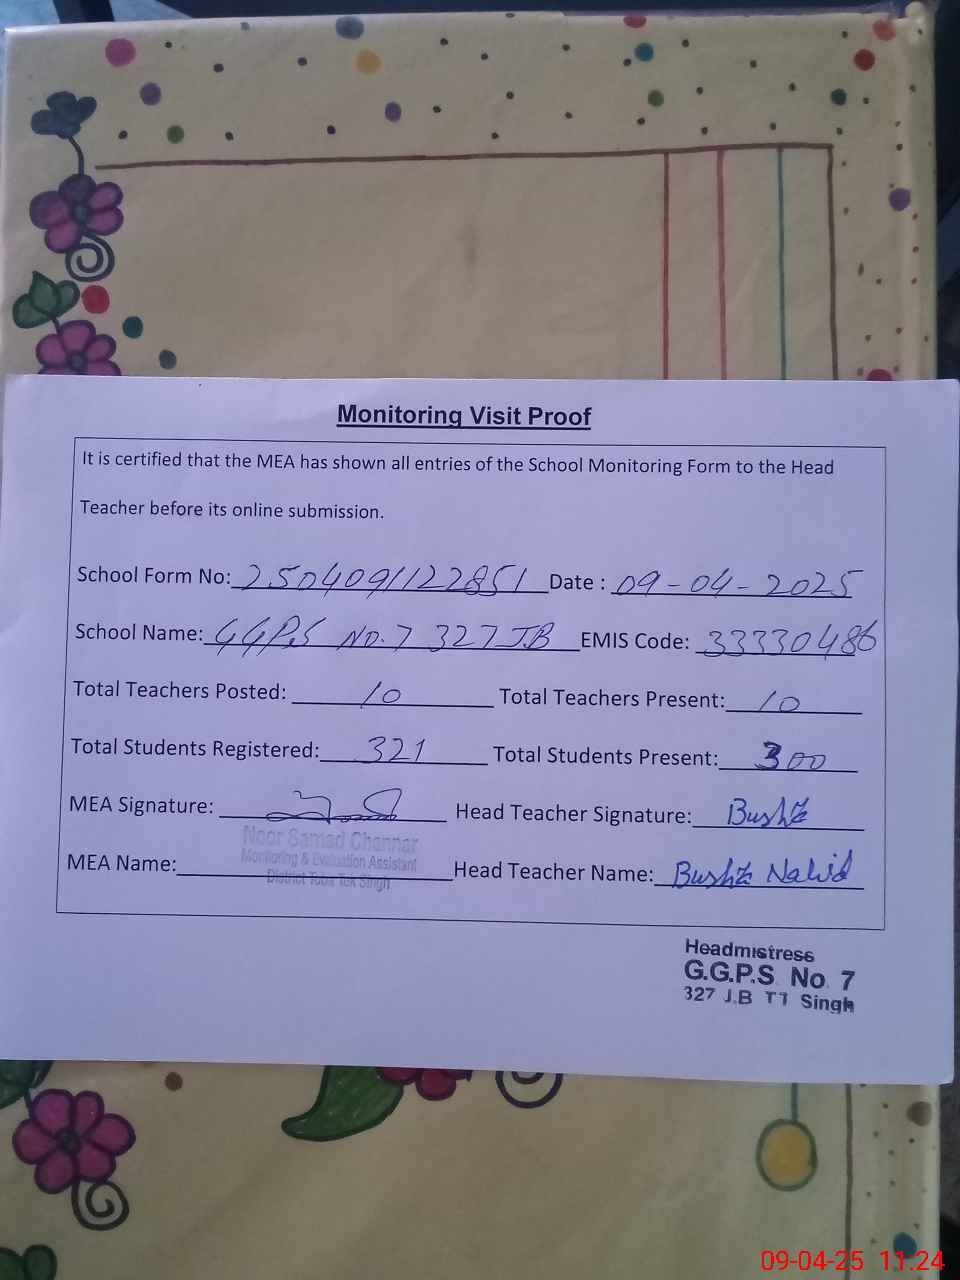 Monitoring Visit Proof
It is certified that the MEA has shown all entries of the School Monitoring Form to the Head
Teacher before its online submission.
School Form No: 2504091122851 Date : 09-04-2025
School Name: GGPS No.7 327 JB EMIS Code: 33330486
Total Teachers Posted: 10 Total Teachers Present: 10
Total Students Registered: 321 Total Students Present: 300
MEA Signature: Head Teacher Signature: Bushra
Noor Samad Channar
Monitoring & Evaluation Assistant
MEA Name: District Toba Tek Singh Head Teacher Name: Bushra Nahid
Headmistress
G.G.P.S. No. 7
327 J.B TT Singh
09-04-25 11:24